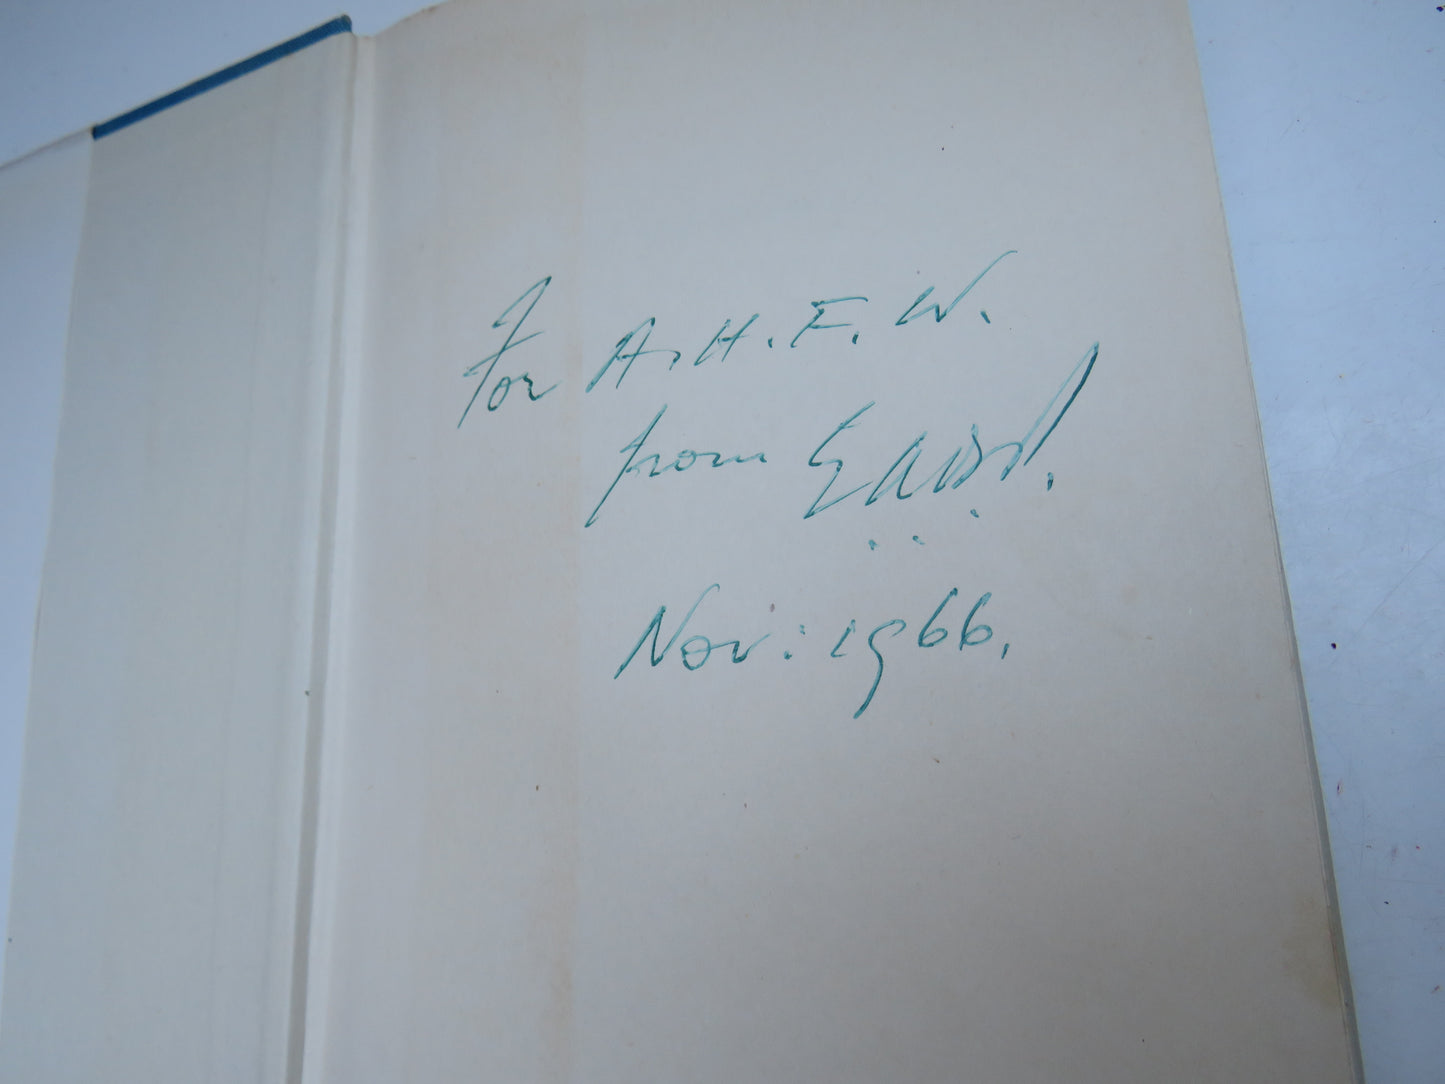 For A.H.F.W.
from
Nov: 1966.